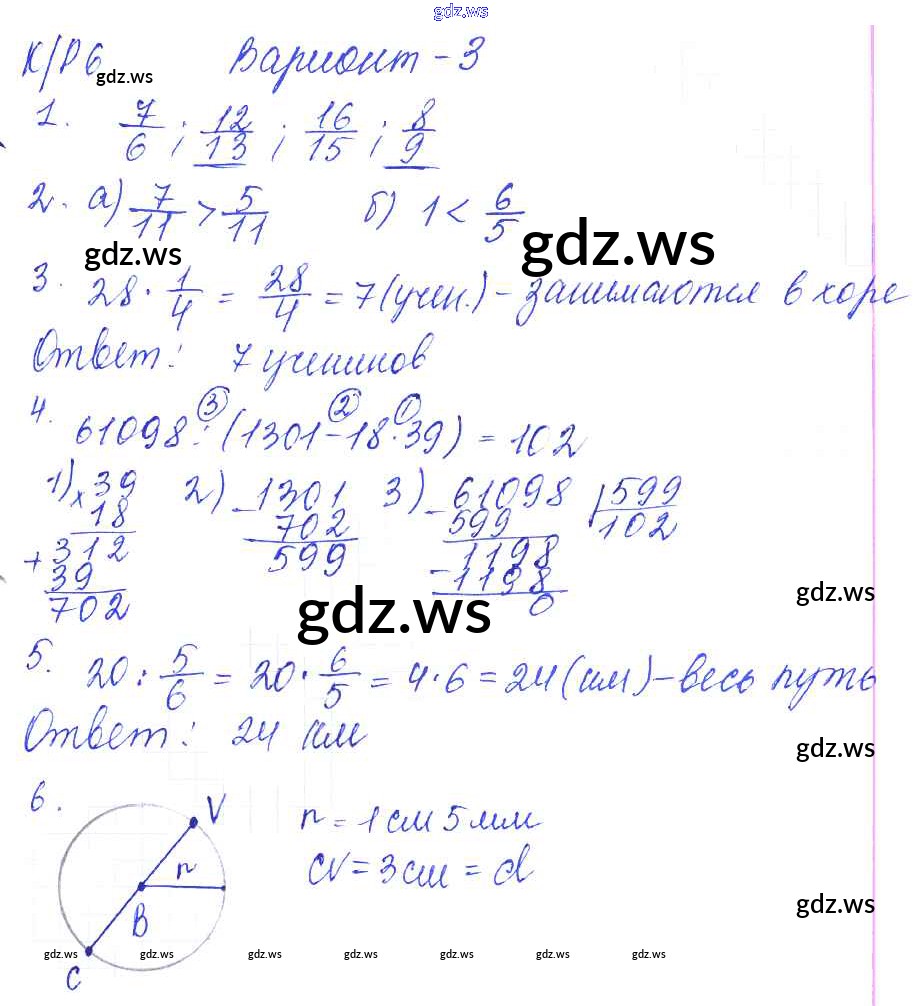 gdz.ws
К/Р 6 Вариант - 3
gdz.ws
1. 7/6 ; 12/13 ; 16/15 ; 8/9
2. а) 7/11 > 5/11 б) 1 < 6/5
gdz.ws gdz.ws
3. 28 · 1/4 = 28/4 = 7 (учен.) - занимаются в хоре
Ответ: 7 учеников
4. 61098 : (1301 - 18 · 39) = 102
3 2 1
1) × 39 2) - 1301 3) - 61098 | 599
18 702 599 102
+ 312 599 1198
39 - 1198
702 0
gdz.ws gdz.ws
5. 20 : 5/6 = 20 · 6/5 = 4 · 6 = 24 (км) - весь путь
Ответ: 24 км
gdz.ws
6. V r = 1 см 5 мм
r CV = 3 см = d
B
gdz.ws
gdz.ws gdz.ws gdz.ws gdz.ws gdz.ws gdz.ws gdz.ws
C